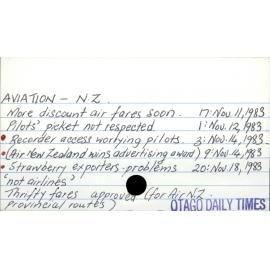 AVIATION - N.Z.
More discount air fares soon. 17: Nov. 11, 1983
Pilots' picket not respected 1: Nov. 12, 1983
Recorder access worrying pilots. 3: Nov. 14, 1983
(Air New Zealand wins advertising award) 9: Nov. 14, 1983
Strawberry exporters - problems 20: Nov 18, 1983
'not airlines'!
Thrifty fares approved (for Air N.Z.
provincial routes)
OTAGO DAILY TIMES